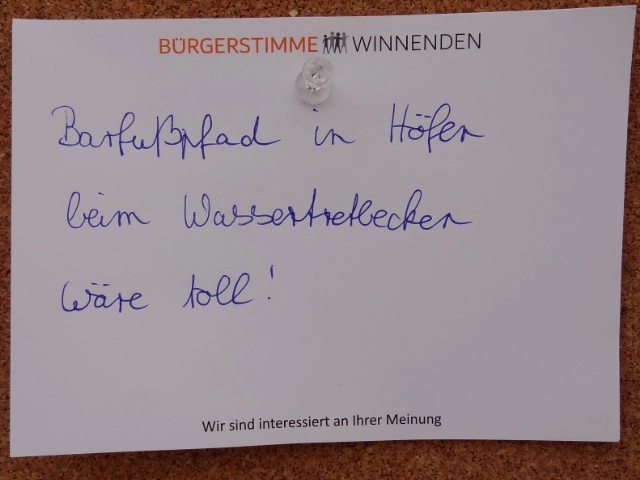 BÜRGERSTIMME WINNENDEN
Barfußpfad in Höfen
beim Wassertretbecken
wäre toll!
Wir sind interessiert an Ihrer Meinung